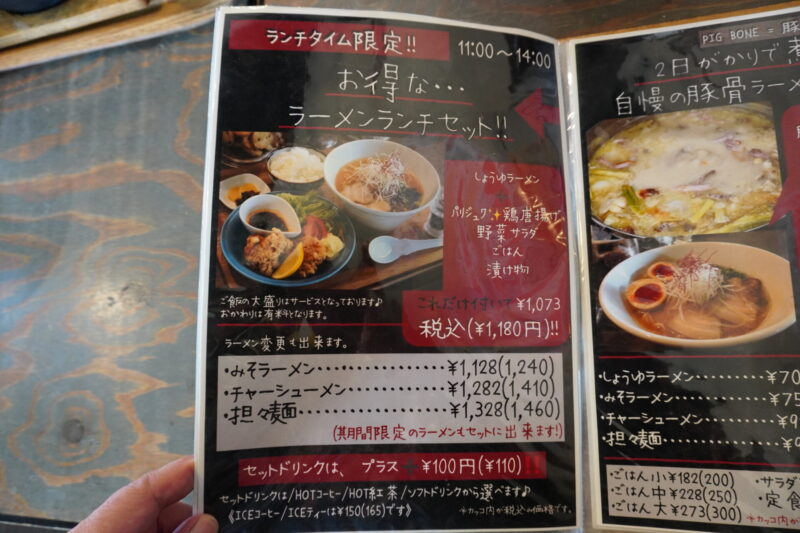 ランチタイム限定!! 11:00〜14:00
お得な・・・
ラーメンランチセット!!
しょうゆラーメン
+
パリジュワ鶏唐揚げ
野菜サラダ
ごはん
漬け物
これだけ付いて¥1,073
税込(¥1,180円)!!
ご飯の大盛りはサービスとなっております♪
おかわりは有料となります。
ラーメン変更も出来ます。
・みそラーメン・・・・・・・・・・・・・・・・・¥1,128(1,240)
・チャーシューメン・・・・・・・・・・・・・¥1,282(1,410)
・担々麺・・・・・・・・・・・・・・・・・・・・・¥1,328(1,460)
(期間限定のラーメンもセットに出来ます!)
セットドリンクは、プラス+¥100円(¥110)
セットドリンクは/HOTコーヒー/HOT紅茶/ソフトドリンクから選べます♪
《ICEコーヒー/ICEティーは¥150(165)です》
*カッコ内が税込の価格です。
PIG BONE = 豚
2日がかりで煮
自慢の豚骨ラーメ
・しょうゆラーメン・・・・・・・・¥70
・みそラーメン・・・・・・・・・・・¥75
・チャーシューメン・・・・・・・¥9
・担々麺・・・・・・・・・・・・・・・¥9
・ごはん 小 ¥182(200)
・ごはん 中 ¥228(250)
・ごはん 大 ¥273(300)
・サラダ
・定食
*カッコ内が